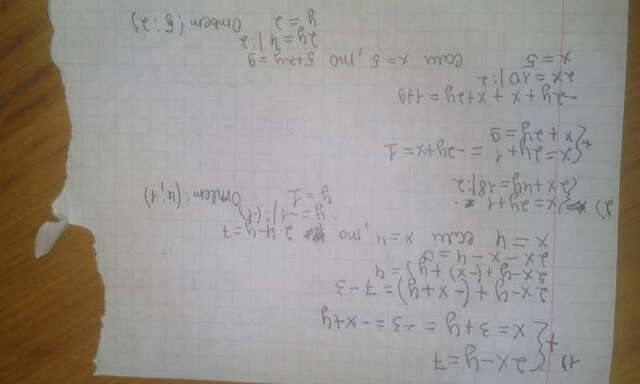 1) { 2x-y=7
+ { x=3+y = -3=-x+y
2x-y+(-x+y)=7-3
2x-y+(-x)+y)=4
2x-x-4=0
x=4 если x=4, то 2·4-y=7
-y=-1|:(-1)
y=1 Ответ: (4;1)
2) { x=2y+1
{ 2x+4y=18|:2
+ { x=2y+1 = -2y+x=1
{ x+2y=9
-2y+x+x+2y=1+9
2x=10|:2
x=5 если x=5, то 5+2y=9
2y=4|:2
y=2 Ответ (5;2)